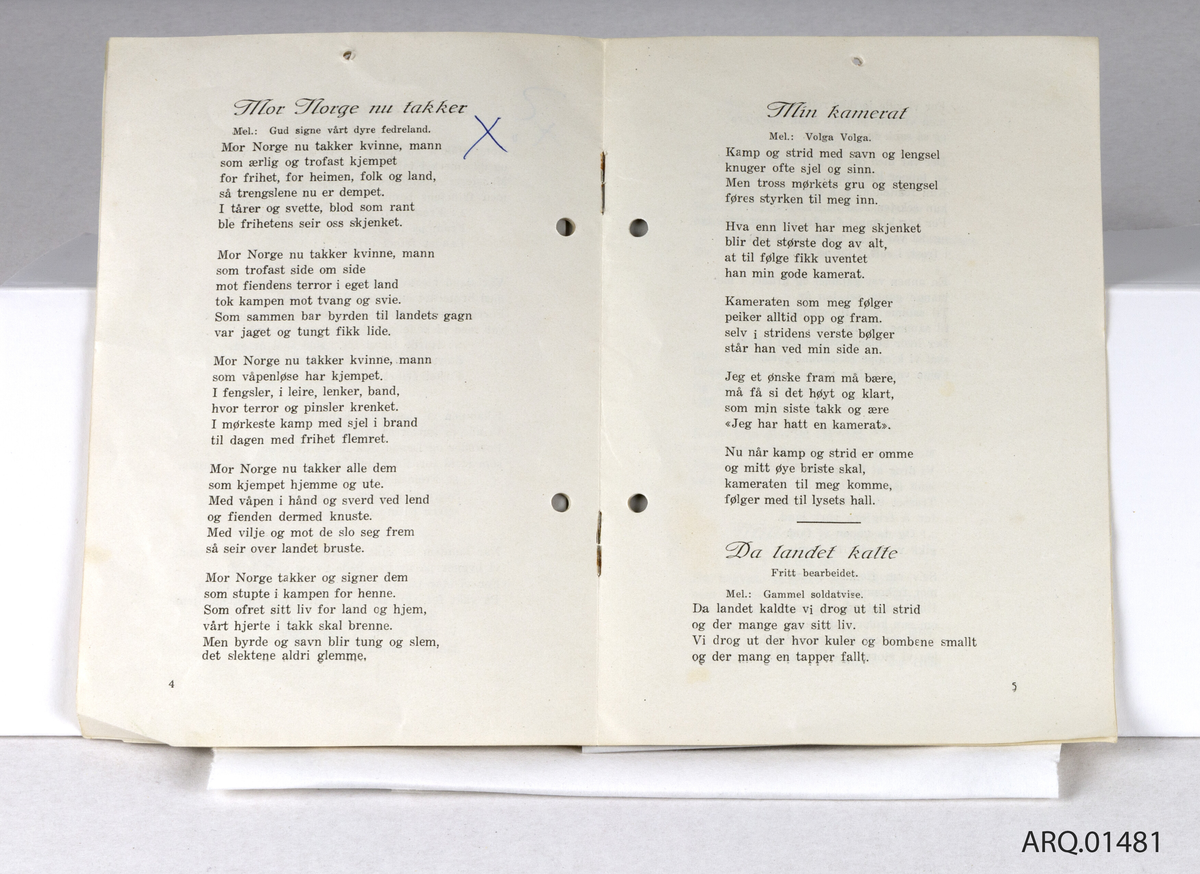 Mor Norge nu takker
Mel.: Gud signe vårt dyre fedreland.
Mor Norge nu takker kvinne, mann
som ærlig og trofast kjempet
for frihet, for heimen, folk og land,
så trengslene nu er dempet.
I tårer og svette, blod som rant
ble frihetens seir oss skjenket.
Mor Norge nu takker kvinne, mann
som trofast side om side
mot fiendens terror i eget land
tok kampen mot tvang og svie.
Som sammen bar byrden til landets gagn
var jaget og tungt fikk lide.
Mor Norge nu takker kvinne, mann
som våpenløse har kjempet.
I fengsler, i leire, lenker, band,
hvor terror og pinsler krenket.
I mørkeste kamp med sjel i brand
til dagen med frihet flemret.
Mor Norge nu takker alle dem
som kjempet hjemme og ute.
Med våpen i hånd og sverd ved lend
og fienden dermed knuste.
Med vilje og mot de slo seg frem
så seir over landet bruste.
Mor Norge takker og signer dem
som stupte i kampen for henne.
Som ofret sitt liv for land og hjem,
vårt hjerte i takk skal brenne.
Men byrde og savn blir tung og slem,
det slektene aldri glemme,
4
Min kamerat
Mel.: Volga Volga.
Kamp og strid med savn og lengsel
knuger ofte sjel og sinn.
Men tross mørkets gru og stengsel
føres styrken til meg inn.
Hva enn livet har meg skjenket
blir det største dog av alt,
at til følge fikk uventet
han min gode kamerat.
Kameraten som meg følger
peiker alltid opp og fram.
selv i stridens verste bølger
står han ved min side an.
Jeg et ønske fram må bære,
må få si det høyt og klart,
som min siste takk og ære
«Jeg har hatt en kamerat».
Nu når kamp og strid er omme
og mitt øye briste skal,
kameraten til meg komme,
følger med til lysets hall.
Da landet kalte
Fritt bearbeidet.
Mel.: Gammel soldatvise.
Da landet kaldte vi drog ut til strid
og der mange gav sitt liv.
Vi drog ut der hvor kuler og bombene smallt
og der mang en tapper fallt.
5
ARQ.01481